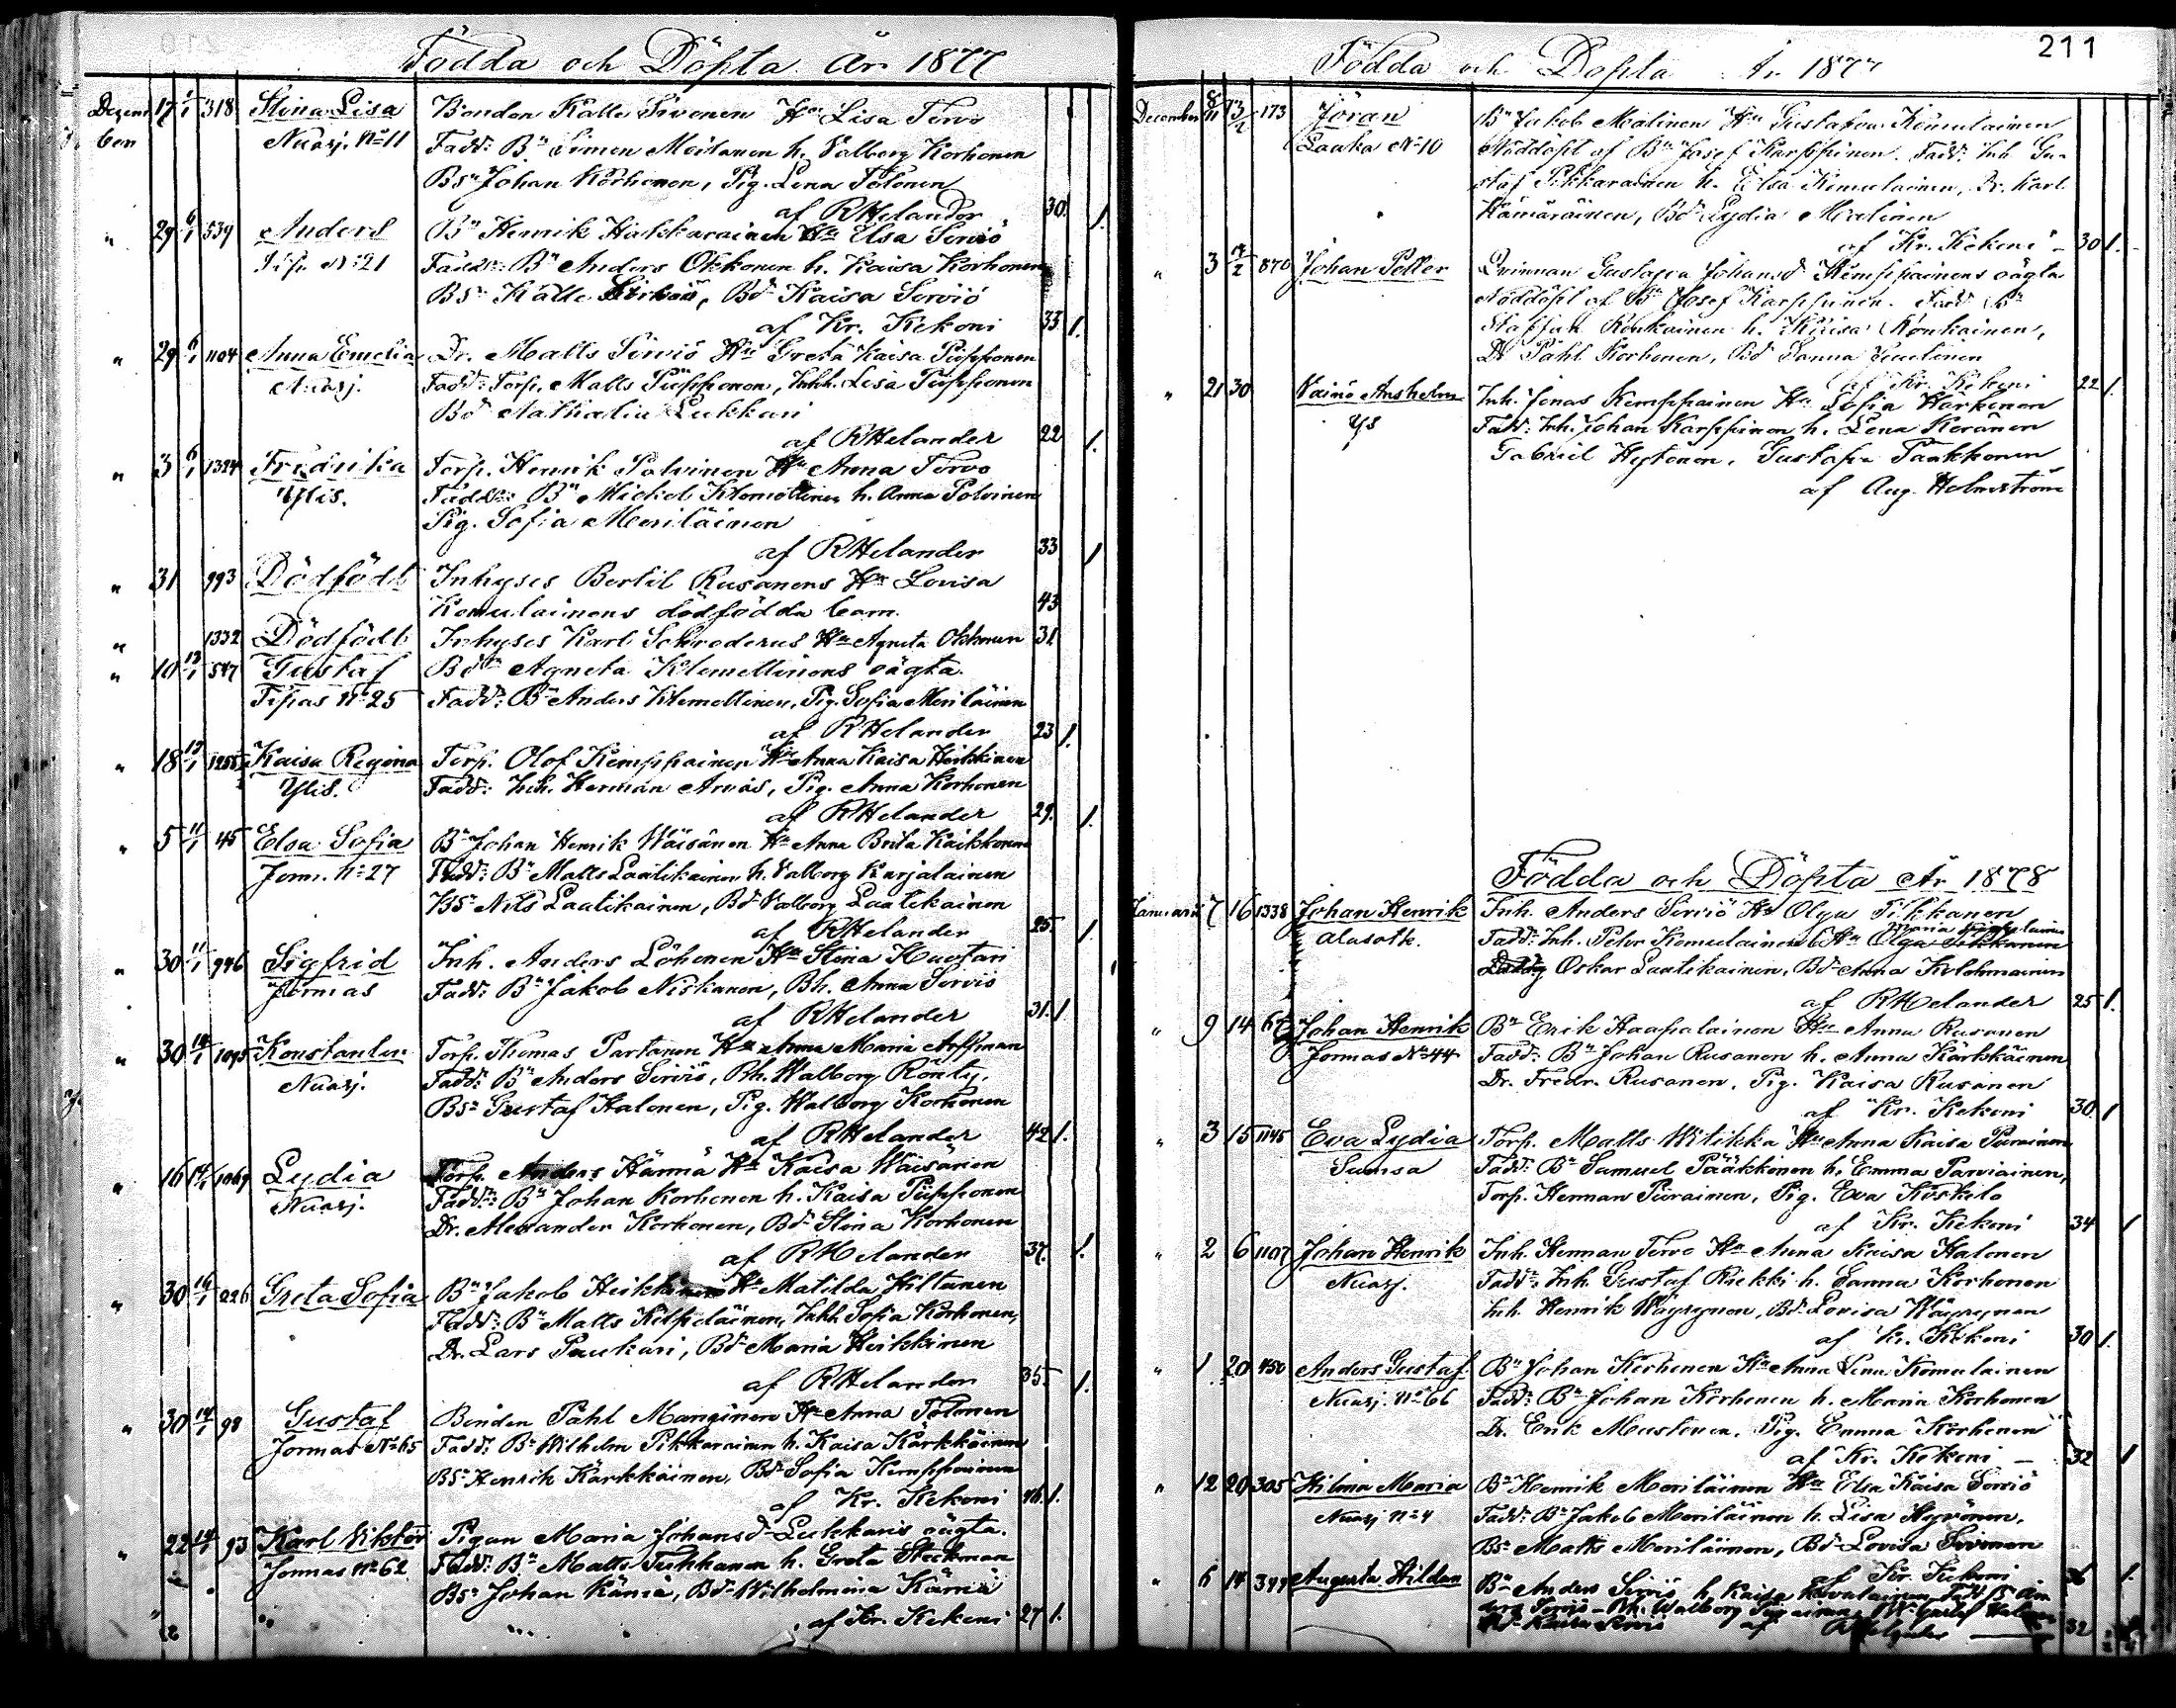 Födda och Döpta År 1877
Dezem 17 1/1 318 Stina Lisa Bonden Kalle Sivonen Hu Lisa Tervo
ber Nuasj. No 11 Fadd: Bn Simon Moilanen h. Valborg Korhonen
Bsn Johan Korhonen, Pig. Lena Tolonen
af RHelander 30. 1.
" 29 6/1 539 Anders Bn Henrik Hakkarainen Hu Elsa Serviö
Tip. No 21 Fadd: Bn Anders Okkonen h. Kaisa Korhonen
Bsn Kalle, Bd Kaisa Serviö
af Kr. Kekoni 33 1.
" 29 6/1 1104 Anna Emelia Dr. Matts Servio Hu Greta Kaisa Piipponen
Nuasj. Fadd: Torp. Matts Piipponen, Inhh. Lisa Piipponen
Bd Nathalia Lukkari
af RHelander 22 1.
" 3 6/1 1324 Fredrika Torp. Henrik Polvinen Hu Anna Tervo
Ylis. Fadd: Bn Mickel Klemettinen h. Anna Polvinen
Pig. Sofia Meriläinen
af RHelander 33 1
" 31 993 Dödfödt Inhyses Bertil Rusanens Hu Lovisa
Komulainens dödfödda barn. 43
" 1332 Dödfödt Inhyses Karl Schroderus Hu Agneta Okkonen 31
" 10 13/1 547 Gustaf Bdn Agneta Klemettinens oägta.
Tipas No 25 Fadd: Bn Anders Klemettinen, Pig. Sofia Meriläinen
af RHelander 23 1.
" 18 13/1 1255 Kaisa Regina Torp. Olof Kemppainen Hu Anna Kaisa Heikkinen
Ylis. Fadd: Inh. Herman Arvas, Pig. Anna Korhonen
af RHelander 29. 1.
" 5 11/1 45 Elsa Sofia Bn Johan Henrik Wäisänen Hu Anna Brita Kaikkonen
Jorm. No 27 Fadd: Bn Matts Laatikainen h. Valborg Karjalainen
Bsn Nils Laatikainen, Bd Valborg Laatikainen
af RHelander 25. 1.
" 30 11/1 946 Sigfrid Inh. Anders Löhönen Hu Stina Huotari
Jormas Fadd: Bn Jakob Niskanen, Bh. Anna Serviö
af RHelander 31. 1.
" 30 14/1 1095 Konstantin Torp. Thomas Partanen Hu Anna Maria Affman
Nuasj. Fadd: Bn Anders Serviö, Bh. Walborg Rönty,
Bsn Gustaf Halonen, Pig. Walborg Korhonen
af RHelander 42 1.
" 16 14/1 1069 Lydia Torp. Anders Hännä Hu Kaisa Wäisänen
Nuasj. Fadd: Bn Johan Korhonen h. Kaisa Piipponen
Dr. Alexander Korhonen, Bd Stina Korhonen
af RHelander 37. 1.
" 30 16/1 226 Greta Sofia Bn Jakob Heikkinen Hu Matilda Hiltunen
Fadd: Bn Matts Kilpeläinen, Inhh Sofia Korhonen,
Dr. Lars Paukari, Bd Maria Heikkinen
af RHelander 35. 1.
" 30 14/1 98 Gustaf Bonden Påhl Manginen Hu Anna Tolonen
Jormas No 65 Fadd: Bn Wilhelm Pikkarainen h. Kaisa Karkkäinen
Bsn Henrik Kärkkäinen, Bd Sofia Kemppainen
af Kr. Kekoni 46 1.
" 22 14/1 93 Karl Viktor Pigan Maria Johansd. Lukkaris oägta.
Jormas No 62 Fadd: Bn Matts Tuhkanen h. Greta Stockman
Bsn Johan Kämä, Bd Wilhelmina Kämä
af Kr. Kekoni 27 1.
211
Födda och Döpta År 1877
December 8/11 13/2 173 Jöran Bn Jakob Malinen Hu Gustafva Komulainen
Laaka No 10 Nöddöpt af Bn Josef Karppinen. Fadd: Inh. Gu-
staf Pikkarainen h. Elsa Komulainen, Dr. Karl
Hämäräinen, Bd Lydia Malinen
af Kr. Kekoni 30 1.
" 3 870 Johan Petter Qvinnan Gustafva Johansd. Kemppainens oägta
Nöddöpt af Bn Josef Karppinen. Fadd: Bn
Staffan Ronkainen h. Kaisa Ronkainen,
Dr Påhl Korhonen, Bd Sanna Juntunen
af Kr. Kekoni 22 1.
" 21 30 Vainö Anshelm Inh. Jonas Kemppainen Hu Sofia Härkönen
Ys Fadd: Inh. Johan Karppinen h. Lena Keränen
Gabriel Hytönen, Gustafva Paakkonen
af Aug. Holmström
Födda och Döpta År 1878
Januarii 7 16 1338 Johan Henrik Inh. Anders Serviö Hu Olga Pikkanen
Alasotk. Fadd: Inh. Petter Komulainen Hu Olga Pikkanen
Oskar Laatikainen, Bd Anna Kolehmainen
af RHelander 25 1.
" 9 14 67 Johan Henrik Bn Erik Haapalainen Hu Anna Rusanen
Jormas No 44 Fadd: Bn Johan Rusanen h. Anna Kärkkäinen
Dr. Fredr. Rusanen, Pig. Kaisa Rusanen
af Kr. Kekoni 30. 1
" 3 15 1145 Eva Lydia Torp. Matts Witikka Hu Anna Kaisa Parviainen
Sumsa Fadd: Bn Samuel Pääkkönen h. Emma Parviainen,
Torp. Herman Piirainen, Pig. Eva Koskelo
af Kr. Kekoni 34 1
" 2 6 1107 Johan Henrik Inh. Herman Tervo Hu Anna Kaisa Halonen
Nuasj. Fadd: Inh. Gustaf Riekki h. Sanna Korhonen
Inh. Henrik Wäyrynen, Bd Lovisa Wäyrynen
af Kr. Kekoni 30 1.
" 1 20 450 Anders Gustaf Bn Johan Korhonen Hu Anna Lena Komulainen
Nuasj. No 66 Fadd: Bn Johan Korhonen h. Maria Korhonen
Dr. Erik Mustonen, Pig. Emma Korhonen
af Kr. Kekoni 32 1
" 12 20 305 Hilma Maria Bn Henrik Meriläinen Hu Elsa Kaisa Serviö
Nuasj No 4 Fadd: Bn Jakob Meriläinen h. Lisa Hyvönen,
Bsn Matts Meriläinen, Bd Lovisa Sivonen
af Kr. Kekoni 36 1.
" 6 14 344 Augusta Hildan Bn Anders Serviö h. Kaisa Kovalainen Fadd Bn An
ders Serviö - Bh. Walborg
Bd Kaisa Serviö af RHelander 32